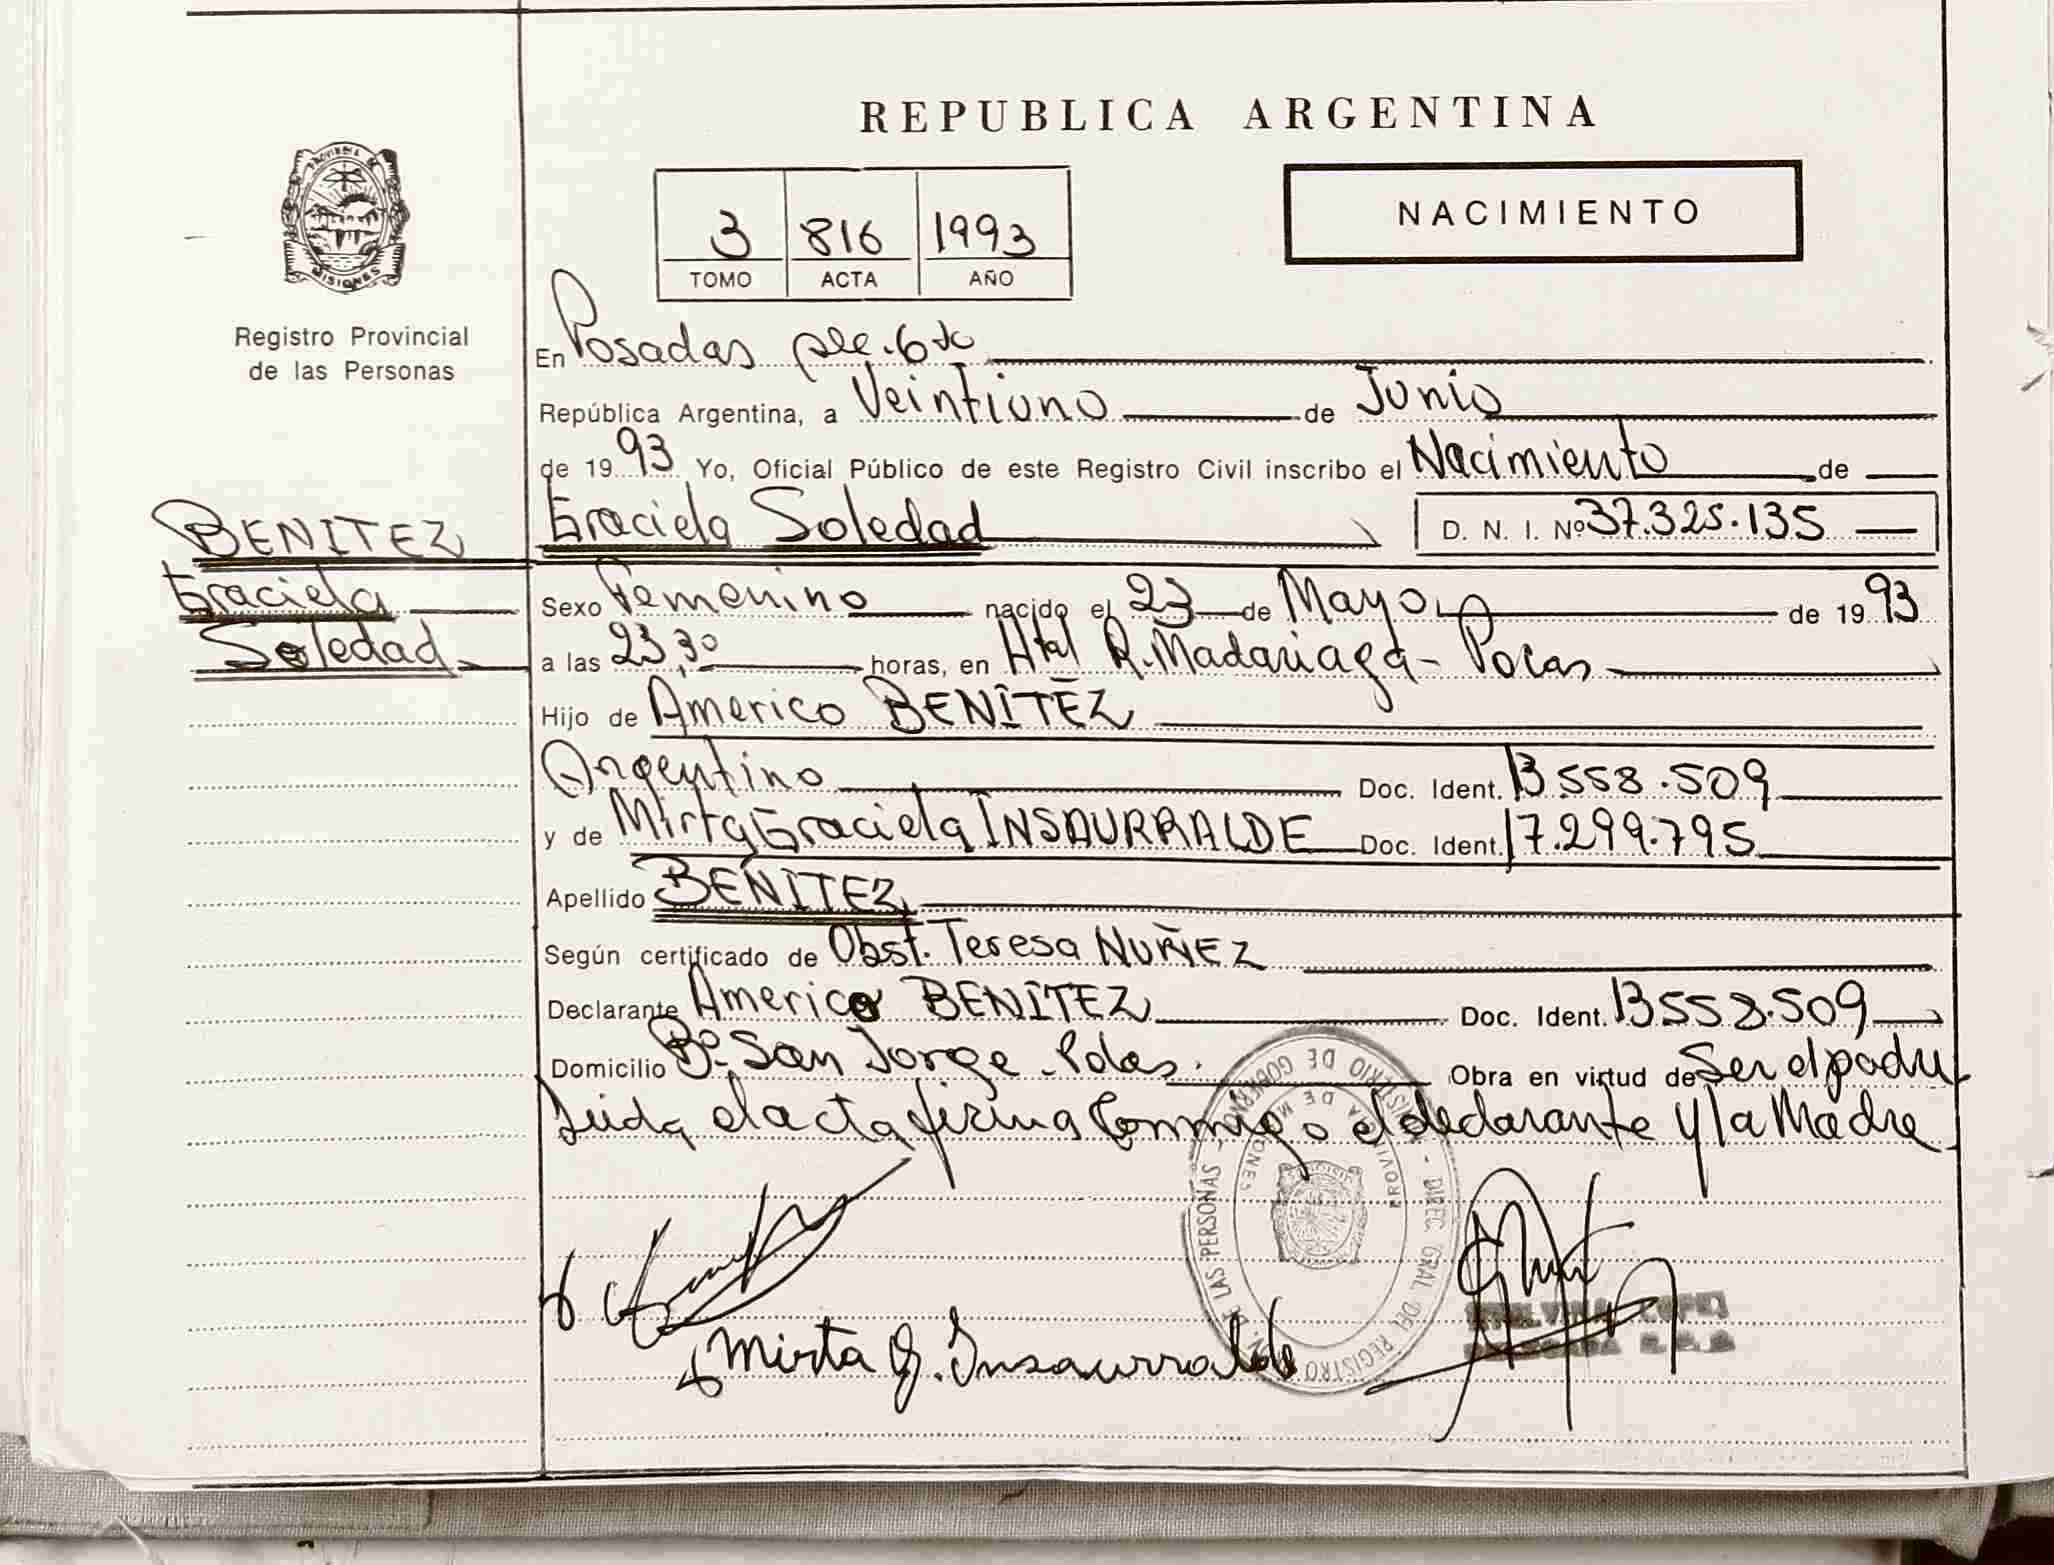 REPUBLICA ARGENTINA
PROVINCIA DE
MISIONES
Registro Provincial
de las Personas
3 816 1993
TOMO ACTA AÑO
NACIMIENTO
En Posadas
República Argentina, a Veintiuno de Junio
de 1993 Yo, Oficial Público de este Registro Civil inscribo el Nacimiento de
BENITEZ
Graciela
Soledad
Graciela Soledad D. N. I. Nº 37.325.135
Sexo Femenino nacido el 23 de Mayo de 1993
a las 23,30 horas, en Htal R. Madariaga - Pdas
Hijo de Americo BENITEZ
Argentino Doc. Ident. 13.558.509
y de Mirta Graciela INSAURRALDE Doc. Ident. 17.299.795
Apellido BENITEZ
Según certificado de Obst. Teresa NUÑEZ
Declarante Americo BENITEZ Doc. Ident. 13.558.509
Domicilio Bº San Jorge - Pdas. Obra en virtud de Ser el padre
Leida el acta firma Conmigo el declarante y la Madre
Mirta G. Insaurralde
DE LAS PERSONAS - MINISTERIO DE GOBIERNO - DIREC. GRAL. DEL REGISTRO
PROVINCIA DE MISIONES